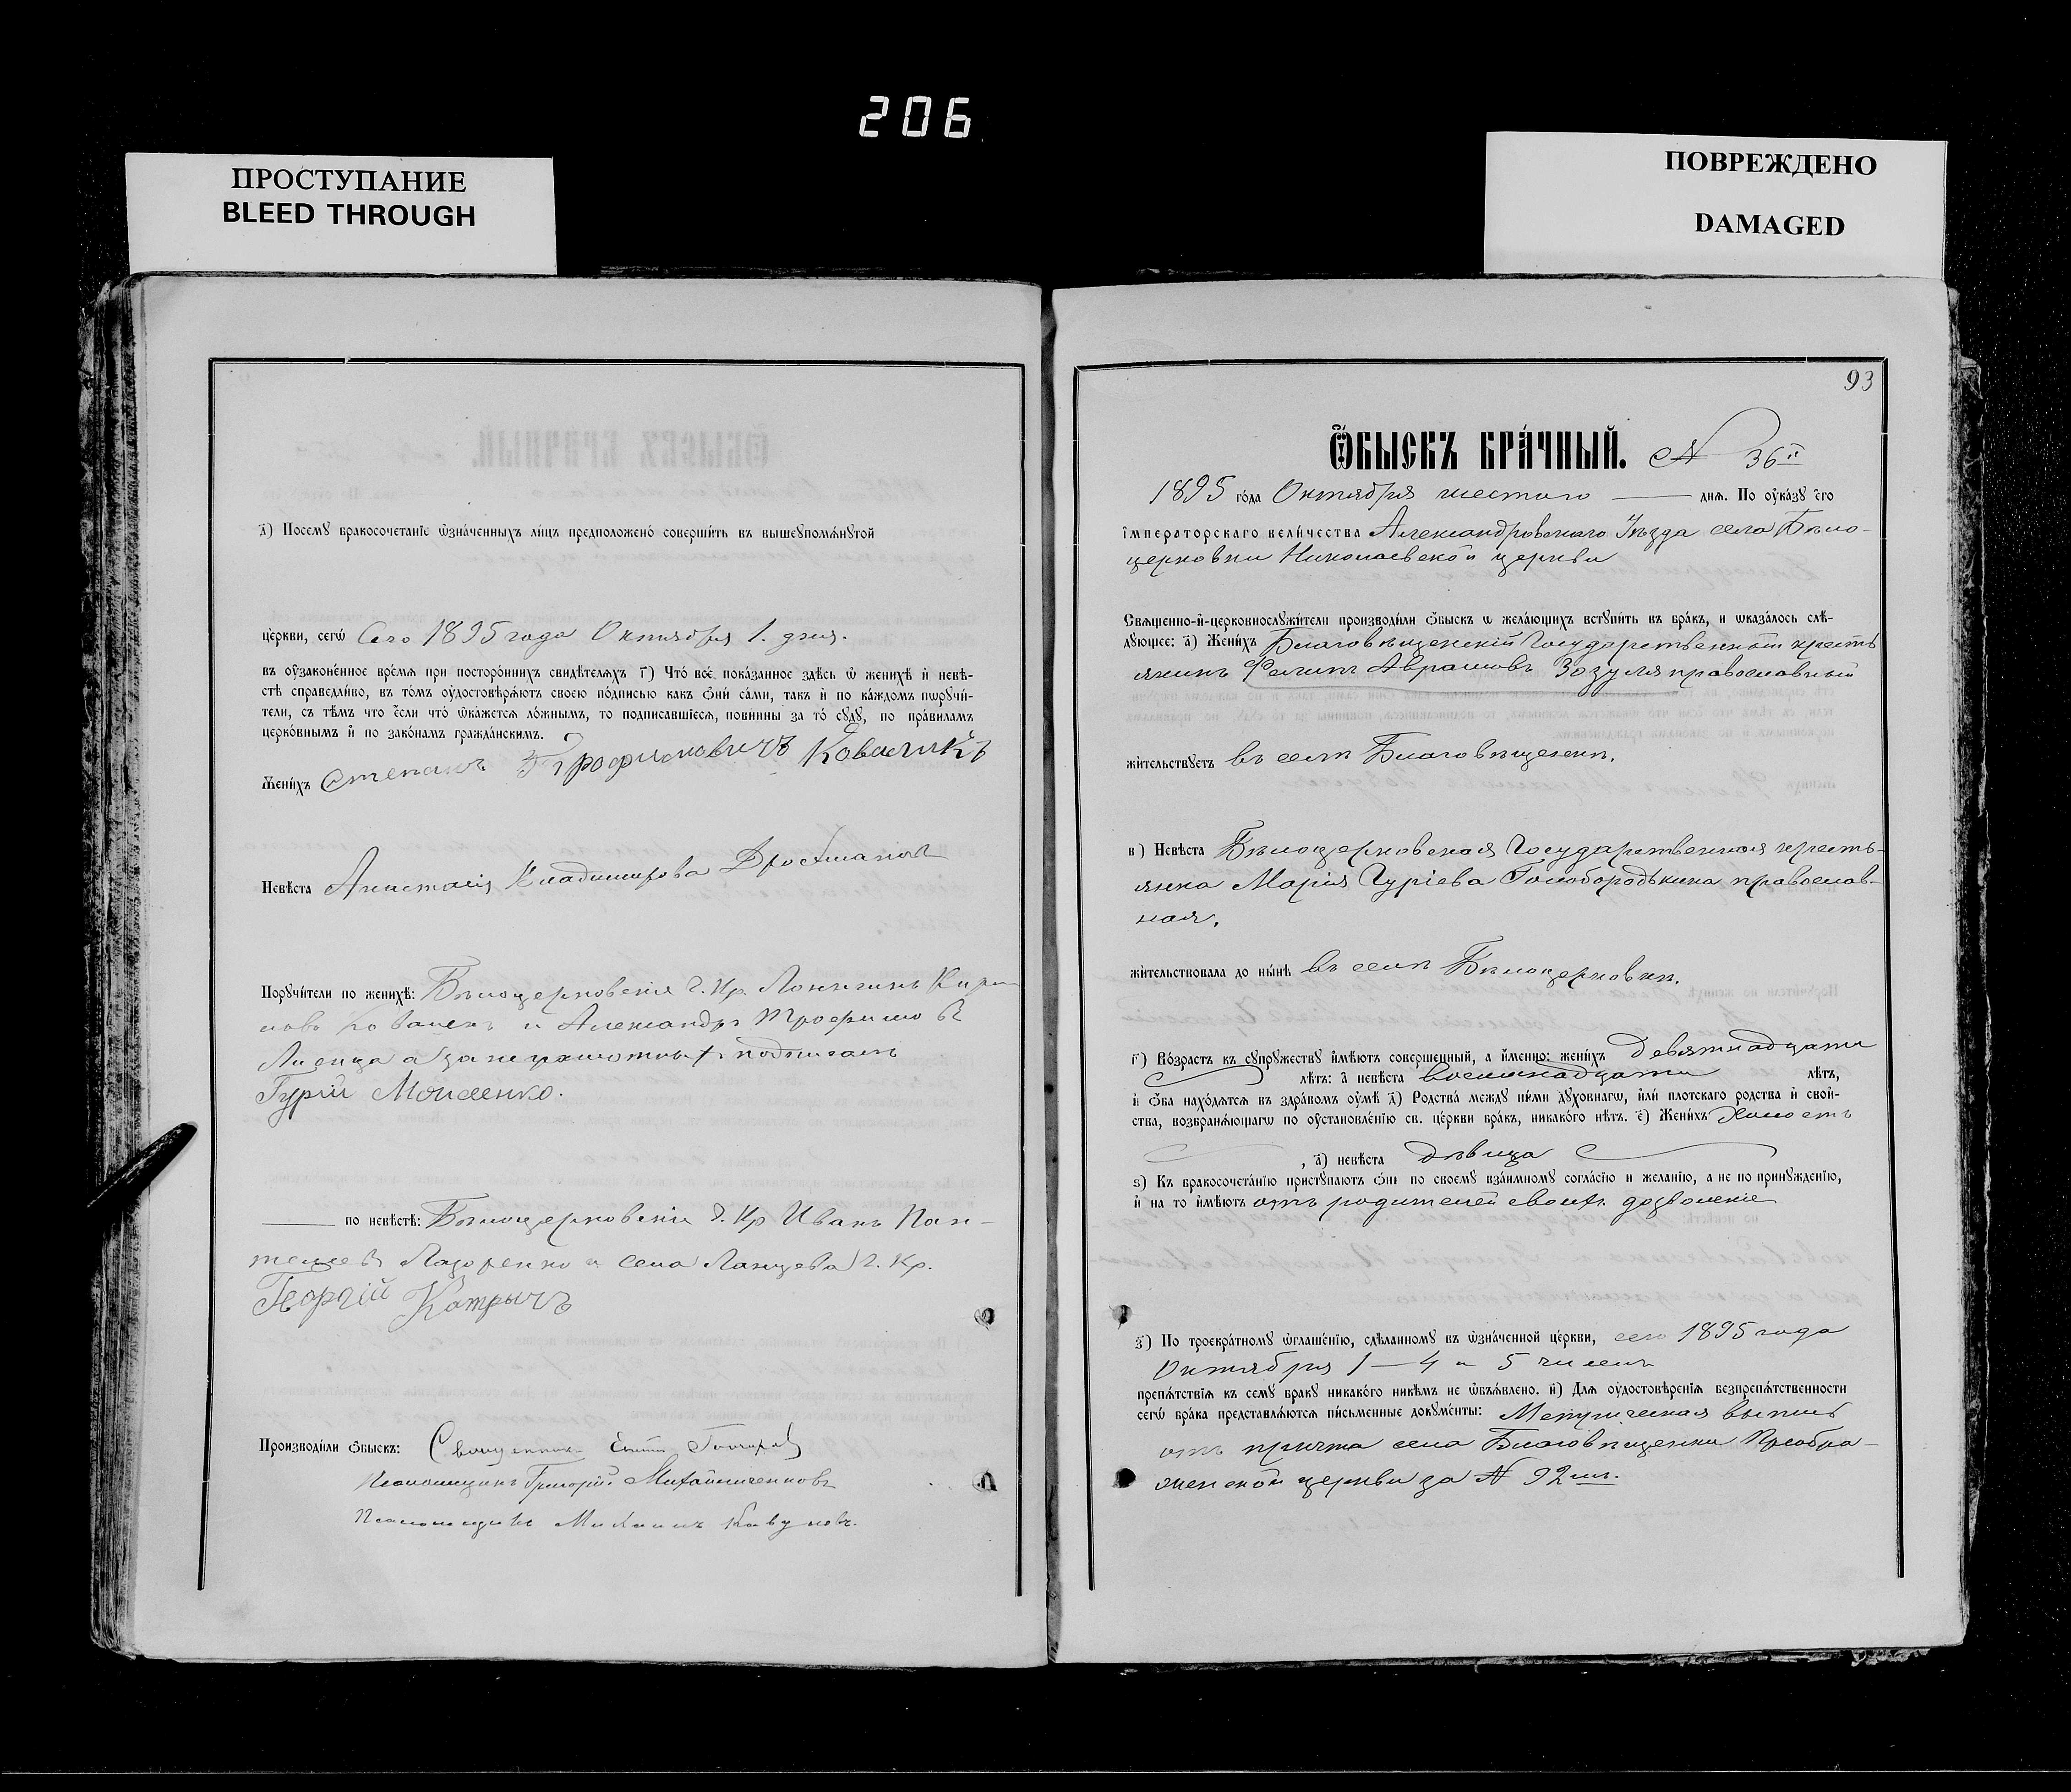 206
ПРОСТУПАНИЕ
BLEED THROUGH
ПОВРЕЖДЕНО
DAMAGED
д҃) Посемꙋ бракосочетанїе ѡзна́ченныхъ ли́цъ предположено́ соверши́ть въ вышеꙋпомѧ́нꙋтой
це́ркви, сегѡ̀ Сего 1895 года Октября 1. дня.
въ оу҆зако́нённое вре́мѧ при посторо́ннихъ свидѣ́телѧхъ г҃) Что́ все́ пока́занное здѣ́сь ѡ҆ женихѣ̀ и҆ невѣ-
стѣ справедли́во, въ то́мъ оу҆достовѣрѧ́ютъ свое́ю по́дписью какъ ѻ҆ни́ са́ми, такъ и҆ по ка́ждомъ пѡрꙋчи́-
тели, съ тѣ́мъ что є҆сли что́ ѡ҆ка́жетсѧ ло́жнымъ, то подписа́вшїесѧ, пови́нны за то́ сꙋдꙋ̀, по пра́виламъ
церко́внымъ и҆ по зако́намъ гражда́нскимъ.
Жени́хъ Степанъ Трофимовичъ Коваликъ
Невѣ́ста Анастасія Владимирова
Порꙋчи́тели по женихѣ̀: Бѣлоцерковскіе Г. Кр. Лонгинъ
и Александръ Трофимовъ
Лисица а за неграмотныхъ подписалъ
Гурій Моисеенко.
по невѣ́стѣ: Бѣлоцерковскіе Г. Кр Иванъ Пан-
телеевъ Лазоренко и села Ланцева Г. Кр.
Георгій Катрычъ
Производи́ли ѻ҆быскъ: Священникъ
Псаломщикъ Григорій Михайличенковъ
Псаломщикъ Михаилъ Кавуновъ.
93
Ѻ҆БЫСКЪ БРА́ЧНЫЙ. № 36й
1895 го́да Октября шестого днѧ. По оу҆ка́зꙋ є҆гѡ̀
і҆мператорскагѡ вели́чества Александровскаго Уѣзда села Бѣло-
церковки Николаевской церкви
Свѧще́нно-и҆-церковнослꙋжи́тели производи́ли ѻ҆быскъ ѡ жела́ющихъ встꙋпи́ть въ бра́къ, и ѡказа́лось слѣ́-
дꙋющее: а҃) Жени́хъ Благовѣщенскій Государственный кресть
янинъ Филипъ Аврамовъ Зозуля православный
жи́тельствꙋетъ въ селѣ Благовѣщенки.
в҃) Невѣ́ста Бѣлоцерковская Государственная кресть-
янка Марія Гуріева Голобородькина православ-
ная.
жи́тельствовала до ны́нѣ въ селѣ Бѣлоцерковки.
г҃) Во́зрастъ къ сꙋпрꙋ́жествꙋ и҆мѣ́ютъ совершенный, а и҆́менно: жени́хъ девятнадцати
лѣ́тъ: а҆ невѣ́ста восемнадцати лѣ́тъ,
и҆ ѻ҆́ба нахо́дѧтсѧ въ здра́вомъ оу҆мѣ̀ д҃) Родства̀ междꙋ ни́ми дꙋхо́внагѡ, и҆лѝ плотскаго родства и҆ свой-
ства, возбранѧ́ющагѡ по оу҆становле́нїю св. це́ркви бра́къ, никако́го нѣ́тъ. є҃) Жени́хъ холостъ
, а҆) невѣ́ста дѣвица
ѕ҃) Къ бракосочета́нїю пристꙋпа́ютъ ѻ҆нѝ по своемꙋ̀ взаи́мномꙋ согла́сїю и жела́нїю, а не по принꙋжде́нїю,
и҆ на то и҆мѣ́ютъ отъ родителей своихъ дозволеніе
з҃) По троекра́тномꙋ ѡ҆глаше́нїю, сдѣ́ланномꙋ въ ѡ҆зна́ченной це́ркви, сего 1895 года
Октября 1 – 4 и 5 чиселъ
препѧ́тствїѧ къ семꙋ̀ бракꙋ никако́го никѣ́мъ не ѡ҆бъѧ́влено. и҃) Для оу҆достовѣ́ренїѧ безпрепѧ́тственности
сегѡ̀ бра́ка представлѧ́ютсѧ пи́сьменные докꙋме́нты: Метрическая выпись
отъ причта села Благовѣщенки Преобра-
женской церкви за № 92мъ.